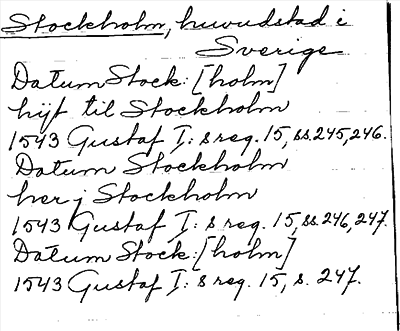 Stockholm, huvudstad i
Sverige
Datum Stock: [holm]
hijt til Stockholm
1543 Gustaf I: s reg. 15, ss. 245, 246.
Datum Stockholm
her j Stockholm
1543 Gustaf I: s reg. 15, ss. 246, 247.
Datum Stock: [holm]
1543 Gustaf I: s reg. 15, s. 247.